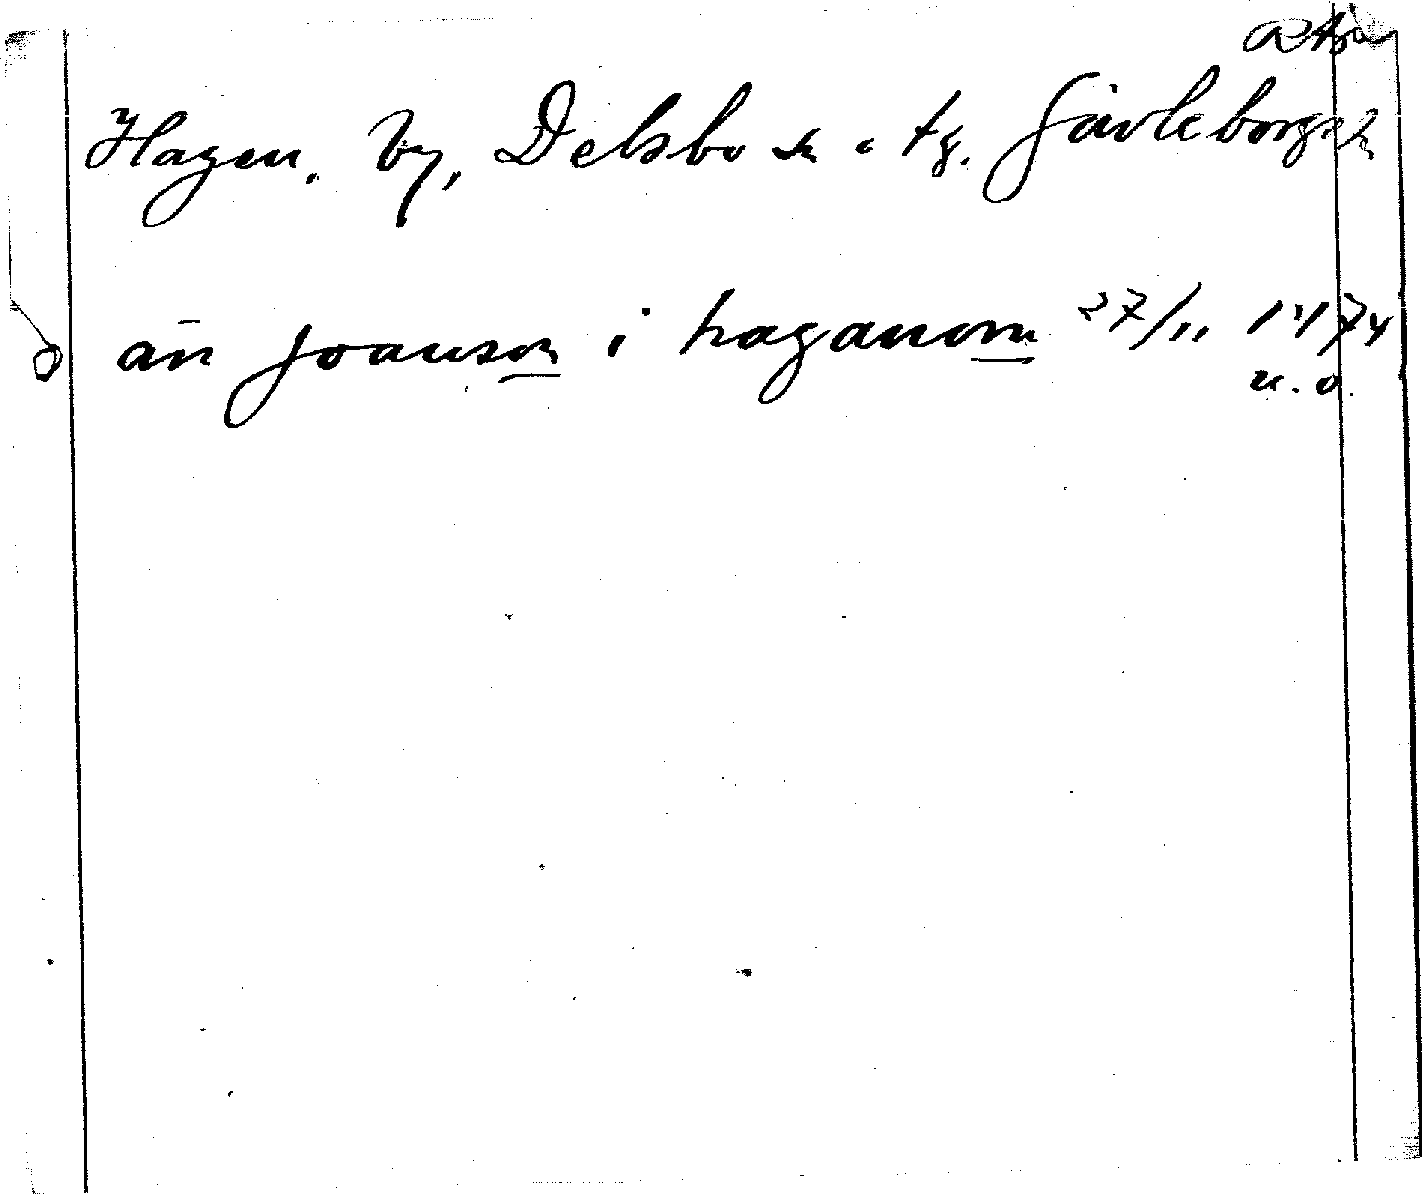 Hagen. by, Delsbo sn o. tg. Gävleborgs l.
än joanson i haganom 27/11 1474
u. o.